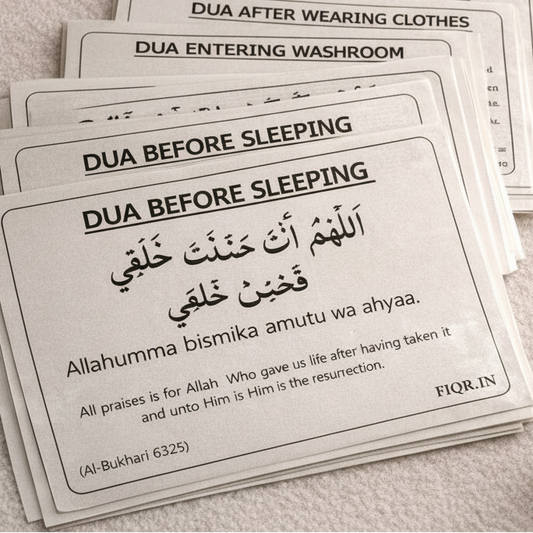 DUA AFTER WEARING CLOTHES
DUA ENTERING WASHROOM
DUA BEFORE SLEEPING
DUA BEFORE SLEEPING
اَللّٰهُمَّ أَنْتَ حَنَنَتَ خَلَقِي
خَلَقِي
Allahumma bismika amutu wa ahyaa.
All praises is for Allah Who gave us life after having taken it
and unto Him is Him is the resurrection.
FIQR.IN
(Al-Bukhari 6325)